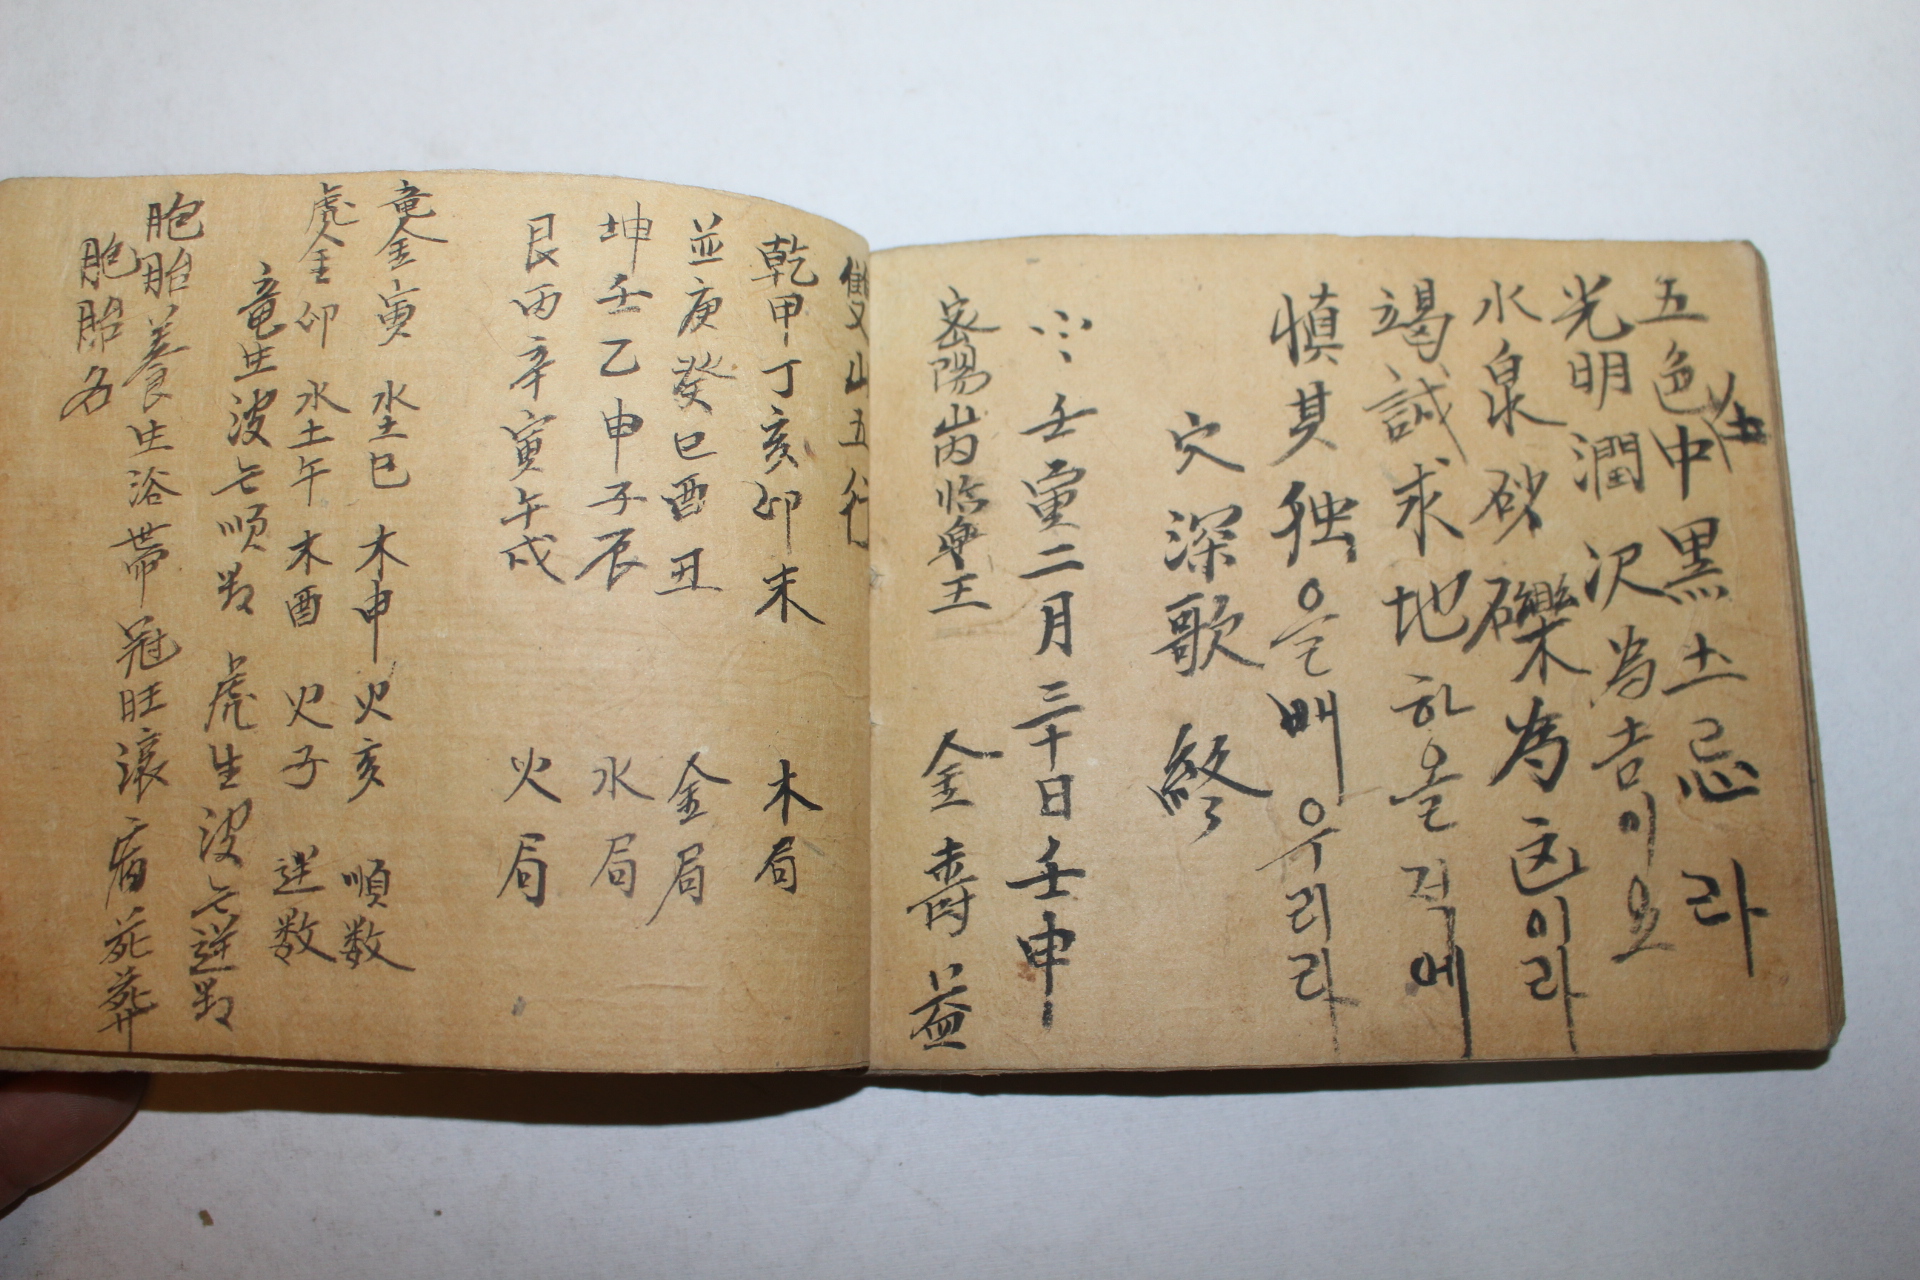 五色中黑土忌라
光明潤沢為吉이요
水泉砂礫為凶이라
竭誠求地하올적에
慎其独을배우리라
穴深歌 終
壬寅二月三十日壬申
密陽 山內 臨皐 王 金壽益
雙山五行
乾甲丁亥卯未 木局
巽庚癸巳酉丑 金局
坤壬乙申子辰 水局
艮丙辛寅午戌 火局
竜金寅 水土巳 木申 火亥 順数
虎金卯 水土午 木酉 火子 逆数
竜生波亡順数 虎生波亡逆数
胞胎養生浴帯冠旺衰病死葬
胞胎